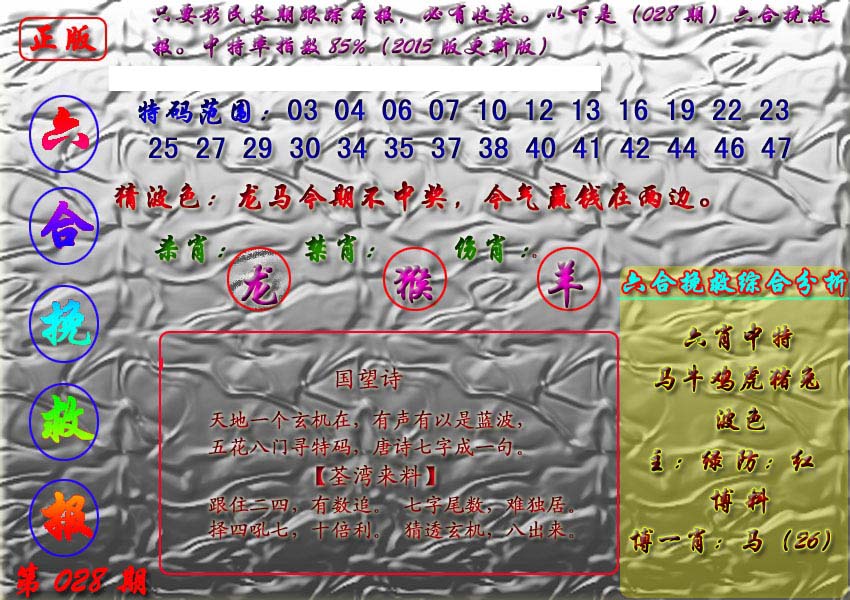 正版
只要彩民长期跟踪本报，必有收获。以下是（028期）六合挽救
报。中特率指数85%（2015版更新版）
六
合
挽
救
报
第028期
特码范围：03 04 06 07 10 12 13 16 19 22 23
25 27 29 30 34 35 37 38 40 41 42 44 46 47
猜波色：龙马今期不中奖，今气赢钱在两边。
杀肖： 禁肖： 伤肖：
龙 猴 羊
国望诗
天地一个玄机在，有声有以是蓝波，
五花八门寻特码，唐诗七字成一句。
【荃湾来料】
跟住二四，有数追。 七字尾数，难独居。
择四吼七，十倍利。 猜透玄机，八出来。
六合挽救综合分析
六肖中特
马牛鸡虎猪兔
波色
主：绿防：红
博料
博一肖：马（26）